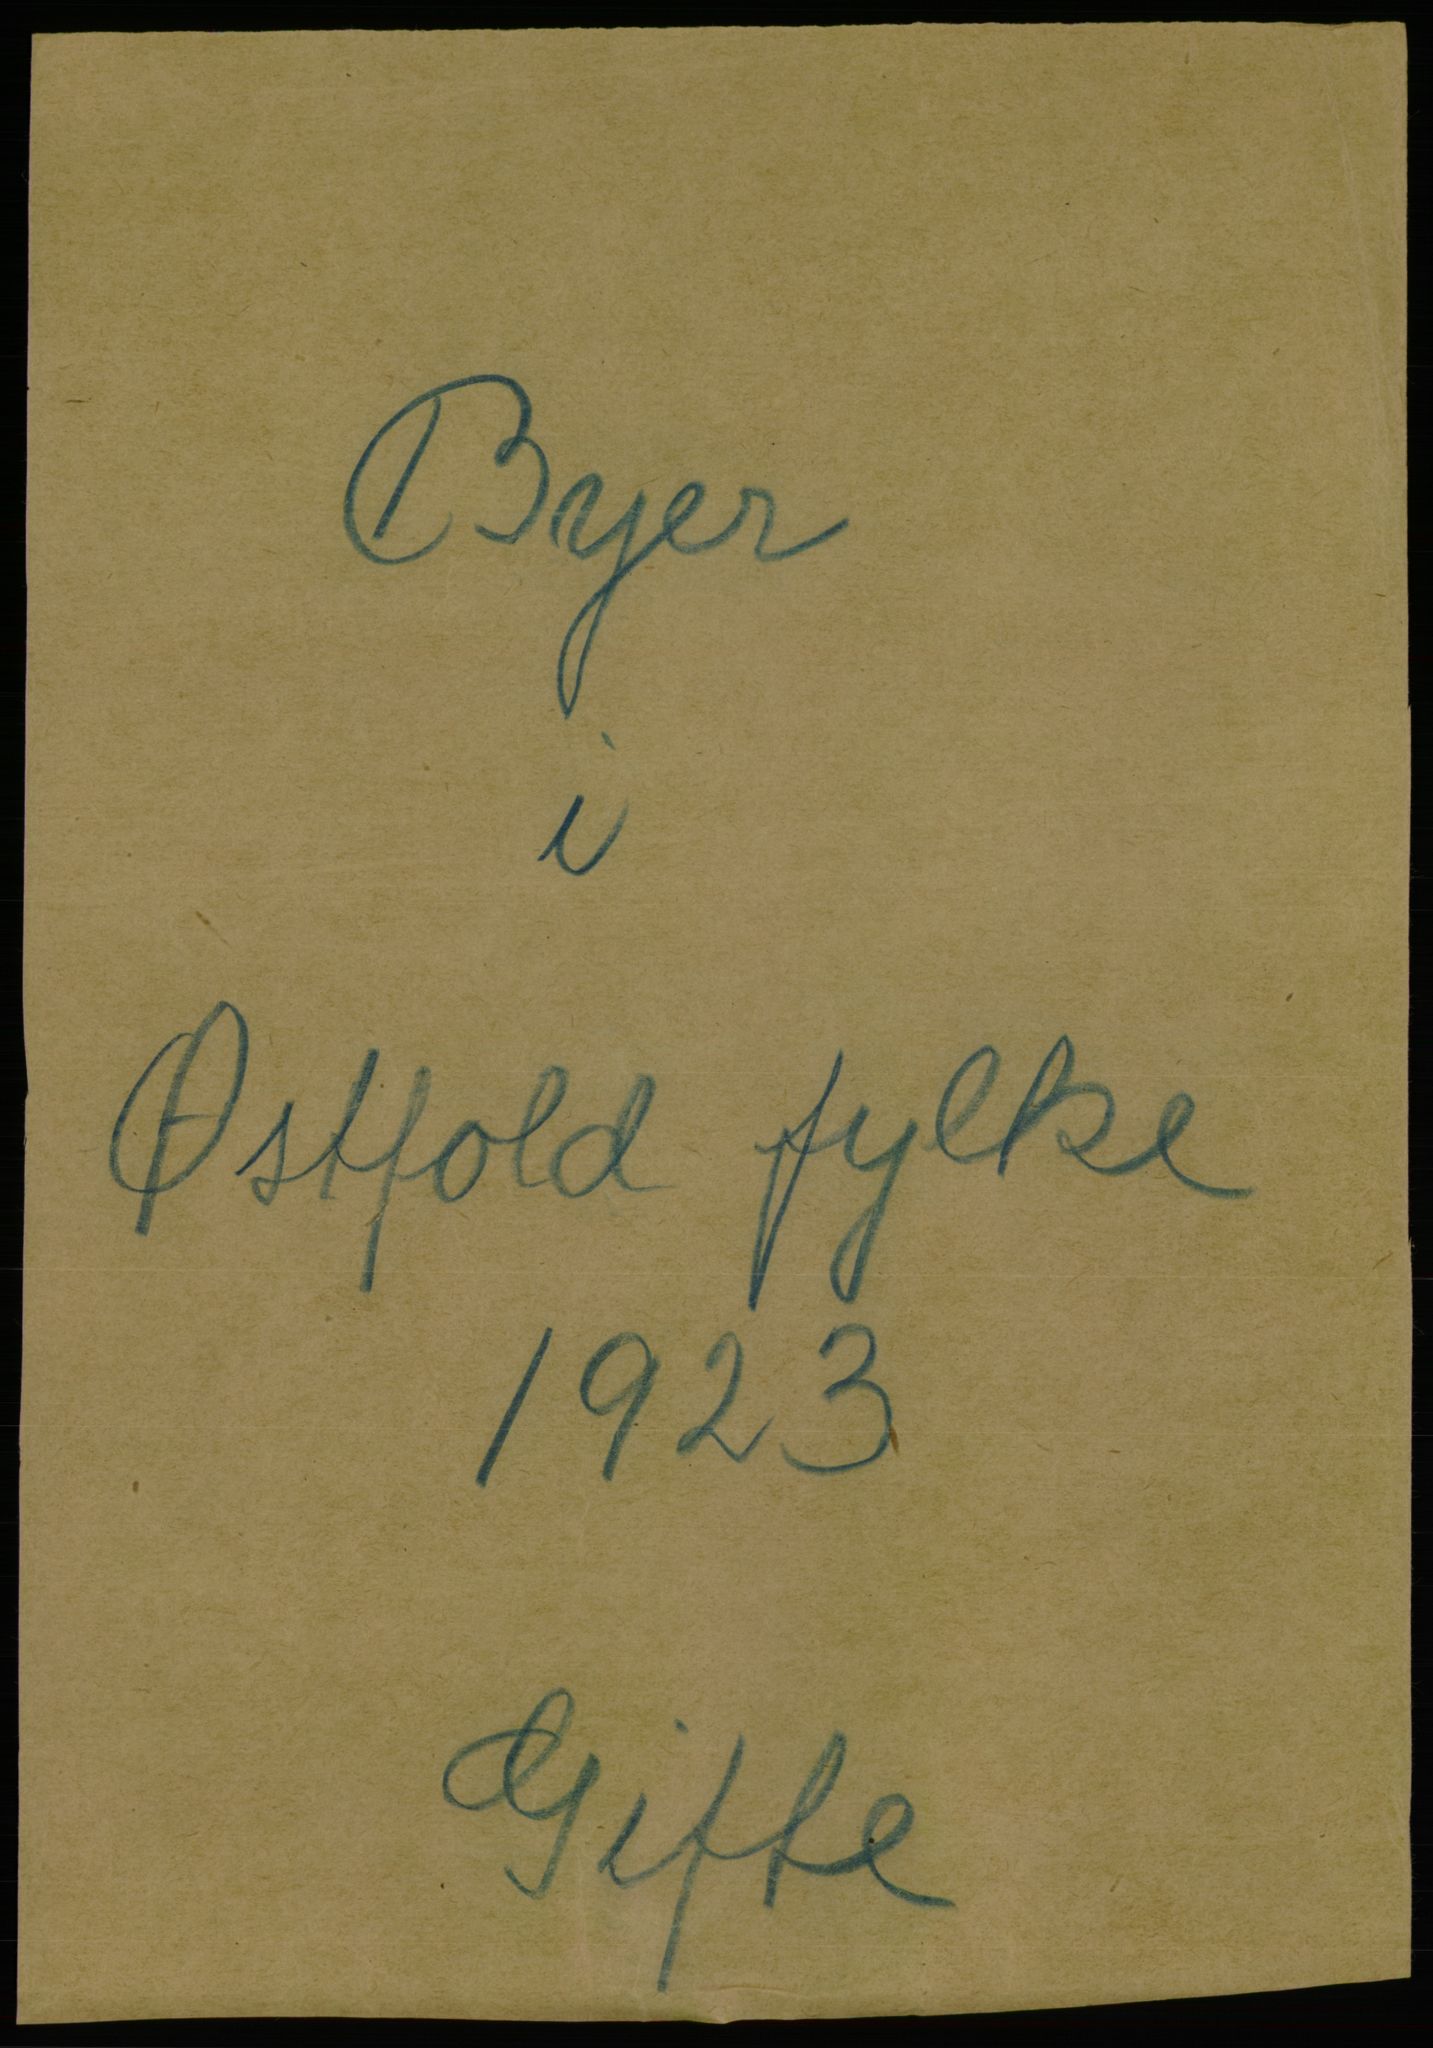 Byer
i
Østfold fylke
1923
Gifte